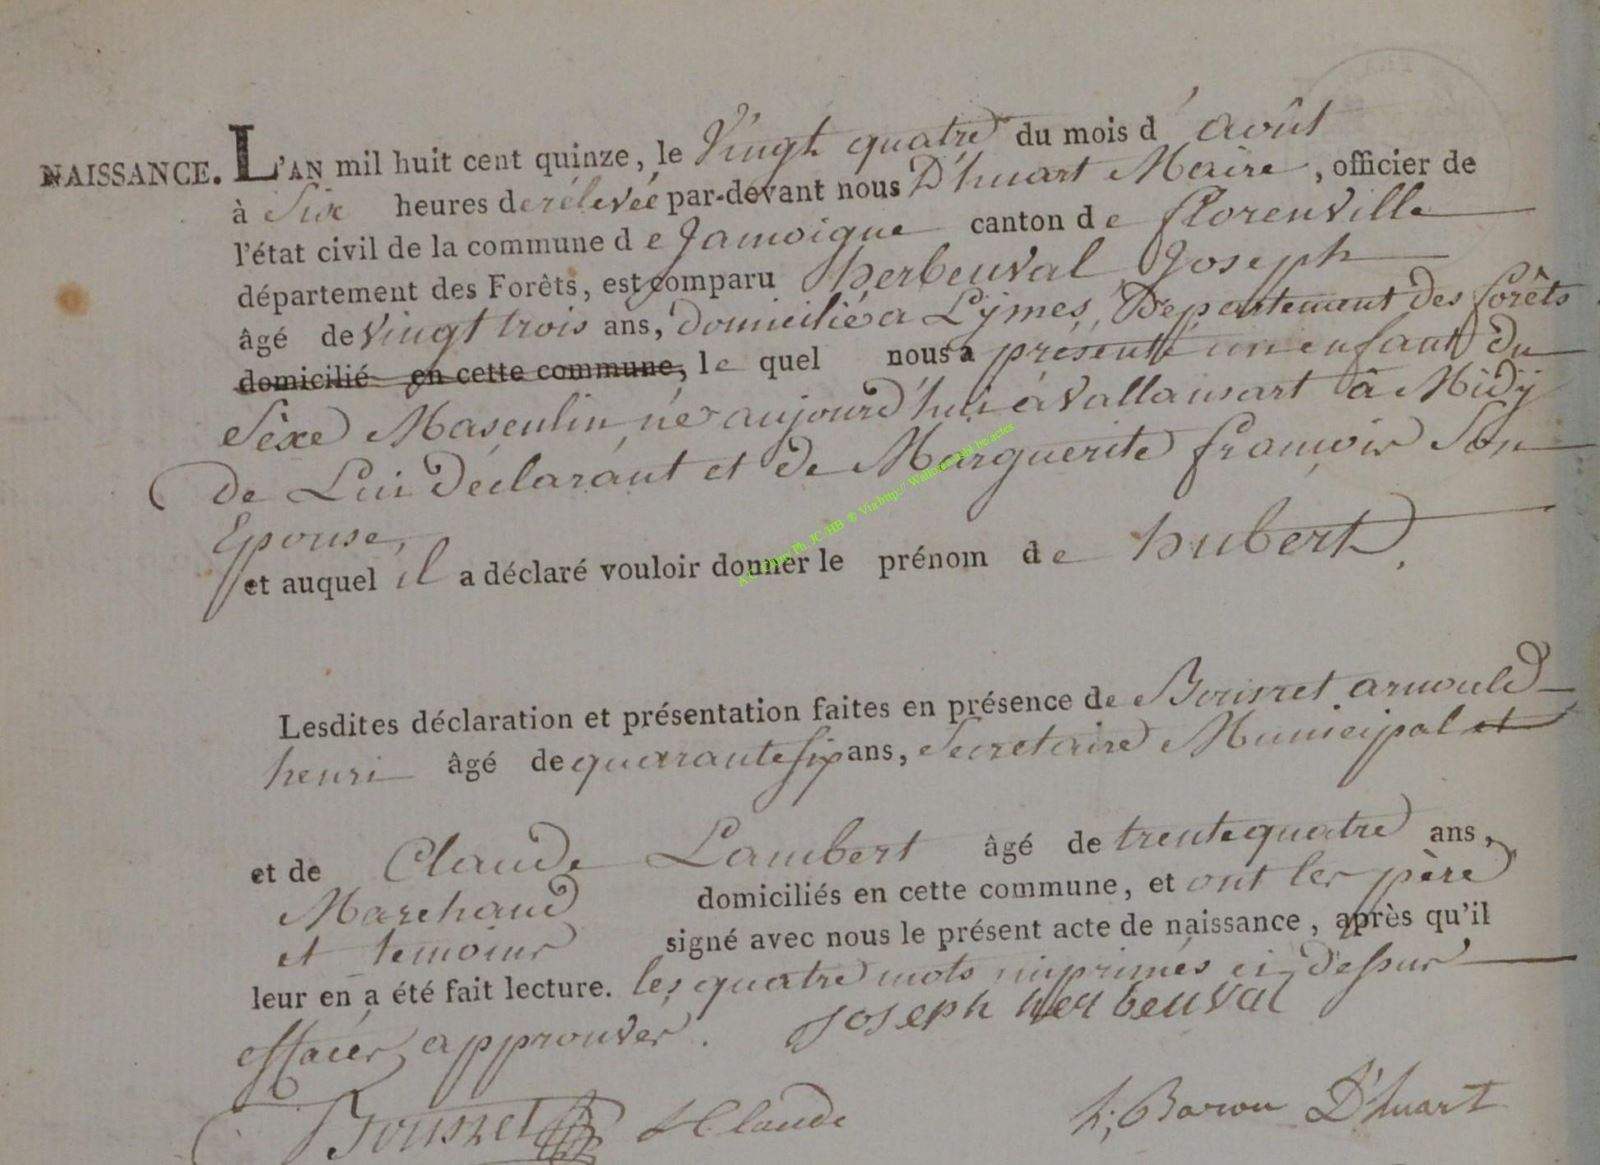 NAISSANCE. L'AN mil huit cent quinze, le Vingt quatre du mois d' Août
à Six heures de rélevée par-devant nous D'huart Maire, officier de
l'état civil de la commune de Jamoigne canton de florenville
département des Forêts, est comparu herbeuval Joseph
âgé de Vingt trois ans, domicilié a Lÿmes, Departement des forêts
domicilié en cette commune, le quel nous a présenté un enfant du
Sèxe Masculin né aujourd'hui à Vallansart à Midÿ
de Lui déclarant et de Marguerite françois Son
Epouse,
et auquel il a déclaré vouloir donner le prénom de hubert.
Lesdites déclaration et présentation faites en présence de arnould
henri âgé de quarante six ans, Secretaire Municipal et
et de Claude Lambert âgé de trente quatre ans,
Marchand domiciliés en cette commune, et ont les père
et temoins signé avec nous le présent acte de naissance, après qu'il
leur en a été fait lecture. les quatre mots imprimés ci-dessus
effacés, approuvés. Joseph herbeuval
Claude h. Baron D'huart